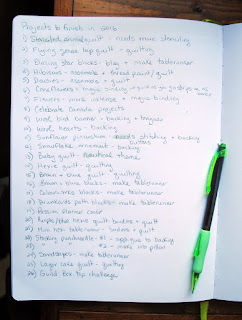 Projects to finish in 2016
1) Stenciled animal quilt - needs more stenciling
2) Flying geese trip quilt - quilting
3) Blazing star blocks - blog + make tablerunner
4) Hibiscus - assemble + thread paint / quilt
5) Daisies - assemble + quilt
6) Coneflowers -
7) Flowers - more intense + maybe binding
8) Celebrate Canada projects
9) Wool bird owner - backing + tongues
10) Wool hearts - backing
11) Sunflower pincushion - needs stitching + backing
12) Snowflake ornament - backing
13) Baby quilt - nautical theme
14) Nexie quilt - quilting
15) Brown + blue quilt - quilting
16) Brown + blue blocks - make tablerunner
17) blocks - make tablerunner
18) Drunkards path blocks - make tablerunner
19) Passion planner cover
20) Purple/blue nine quilt borders + quilt
21) Mini neon tablerunner - borders + quilt
22) Stacey punchneedle #1 - applique to backing
23) " " #2 - make into pillow
24) - make tablerunner
25) Layer cake quilt - quilting
26) Quilt Box top challenge